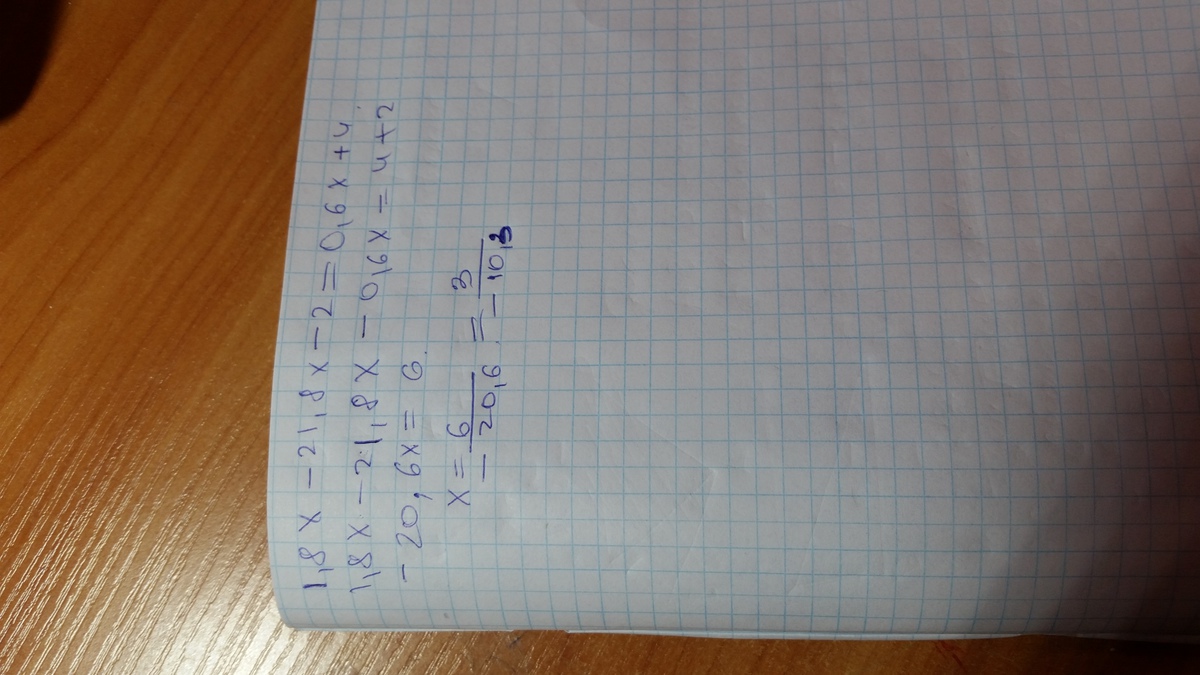 1,8x - 21,8x - 2 = 0,6x + 4
1,8x - 21,8x - 0,6x = 4 + 2
- 20,6x = 6.
x = 6/-20,6 = 3/-10,3